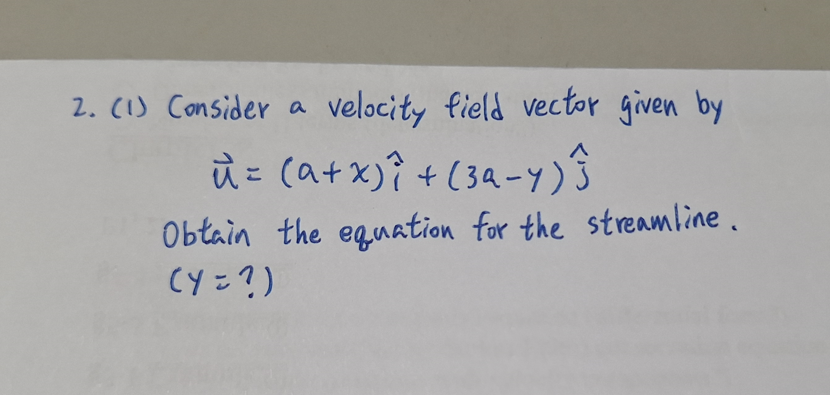 2. (1) Consider a velocity field vector given by
u⃗ = (a+x)î + (3a-y)ĵ
Obtain the equation for the streamline.
(y=?)